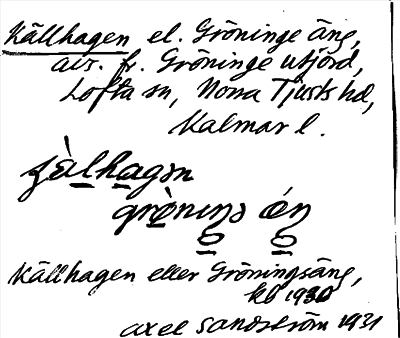 Källhagen el. Gröninge äng,
avs. fr. Gröninge utjord,
Lofta sn, Norra Tjusts hd,
Kalmar l.
Källhagen eller Gröningsäng,
kb 1930
Axel Sandström 1931